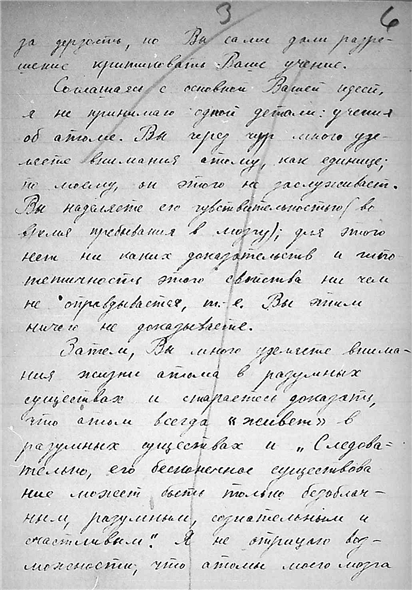 3
6
за дерзость, но Вы сами дали разре-
шение критиковать Ваше учение.
Соглашаясь с основной Вашей идеей,
я не принимаю одной детали: учения
об атоме. Вы через чур много уде-
ляете внимания атому, как единице;
по моему, он этого не заслуживает.
Вы наделяете его чувствительностью (во
время пребывания в мозгу); для этого
нет ни каких доказательств и гипо
тетичность этого свойства ни чем
не оправдывается, т. е. Вы этим
ничего не доказываете.
Затем, Вы много уделяете внима-
ния жизни атома в разумных
существах и стараетесь доказать,
что атом всегда «живет» в
разумных существах и „Следова-
тельно, его бесконечное существова
ние может быть только безоблач-
ным, разумным, сознательным и
счастливым". Я не отрицаю воз-
можности, что атомы моего мозга